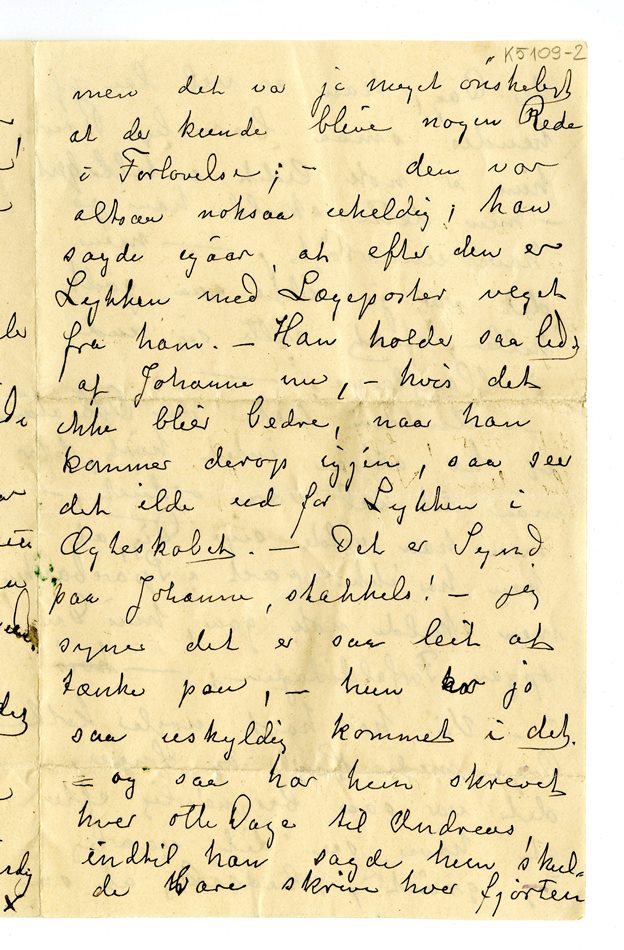 K5109-2
men det var jo meget önskeligt
at der kunde blive nogen Rede
i Forlovelse; – den var
altsaa noksaa uheldig; han
sagde igaar, at efter den er
Lykken med Lægeposter veget
fra ham. – Han holder saa lidt
af Johanne nu, – hvis det
ikke bliér bedre, naar han
kommer derop igjen, saa seer
det ilde ud for Lykken i
Ægteskabet. – Det er Synd
paa Johanne, stakkels! – jeg
synes det er saa leit at
tænke paa, – hun har jo
saa uskyldig kommet i det.
= og saa har hun skrevet
hver otte Dage til Andreas,
indtil han sagde hun skul-
de bare skrive hver fjorten